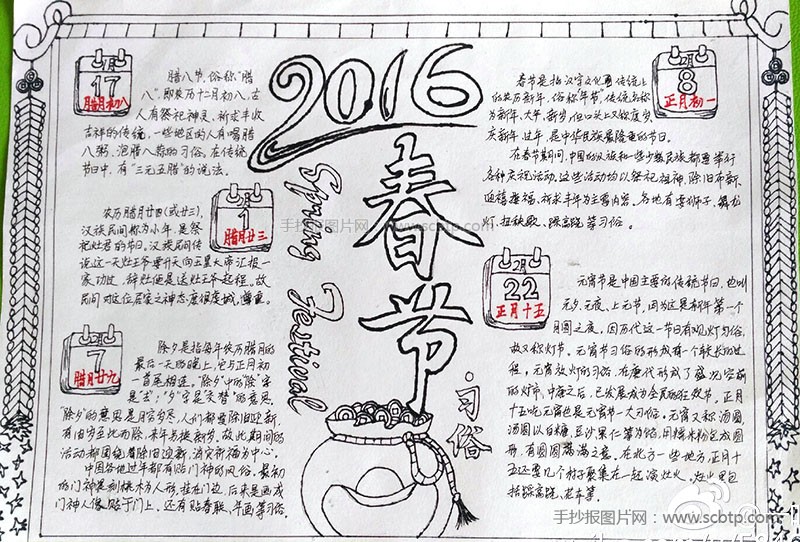 1月
17
腊月初八
腊八节，俗称“腊
八”，即农历十二月初八，古
人有祭祀神灵、祈求丰收
吉祥的传统，一些地区的人有喝腊
八粥、泡腊八蒜的习俗。在传统
节日中，有“三元五腊”的说法。
2月
1
腊月廿三
农历腊月廿四(或廿三)，
汉族民间称为小年，是祭
祀灶君的节日。汉族民间传
说这一天灶王爷要升天向玉皇大帝汇报一
家功过，辞灶便是送灶王爷起程，故
民间对这位居家之神态度很虔诚、尊重。
2月
7
腊月廿九
除夕是指每年农历腊月的
最后一天的晚上，它与正月初
一首尾相连。“除夕”中的“除”字
是“去；”“夕”字是“交替”的意思，
除夕的意思是月穷岁尽，人们都要除旧迎新，
有旧岁至此而除，来年另换新岁。故此期间的
活动都围绕着除旧迎新，消灾祈福为中心。
中国各地过年都有贴门神的风俗。最初
的门神是刻桃木为人形，挂在门边，后来是画成
门神人像贴于门上，还有贴春联、年画等习俗。
2016
春节
·习俗
Spring Festival
2月
8
正月初一
春节是指汉字文化圈传统上
的农历新年，俗称“年节”，传统名称
为新年、大年、新岁，但口头上又称度岁、
庆新年、过年，是中华民族最隆重的节日。
在春节期间，中国的汉族和一些少数民族都要举行
各种庆祝活动。这些活动均以祭祀祖神、除旧布新、
迎禧接福、祈求丰年为主要内容。各地有耍狮子、舞龙
灯、扭秧歌、踩高跷等习俗。
2月
22
正月十五
元宵节是中国主要的传统节日，也叫
元夕、元夜、上元节，因为这是新年第一个
月圆之夜。因历代这一节日有观灯习俗，
故又称灯节。元宵节习俗的形成有一个较长的过
程，元宵放灯的习俗，在唐代形成了盛况空前
的灯市，中唐之后，已发展成为全民的狂欢节。正月
十五吃元宵也是元宵节一大习俗。元宵又称汤圆，
汤圆以白糖、豆沙果仁等为馅，用糯米粉包成圆
形，有团圆满满之意。在北方一些地方，正月十
五还要几个村子聚集在一起演灶火，灶火里包
括踩高跷、老车等。
手抄报图片网：www.scbtp.com
手抄报图片网：www.scbtp.com